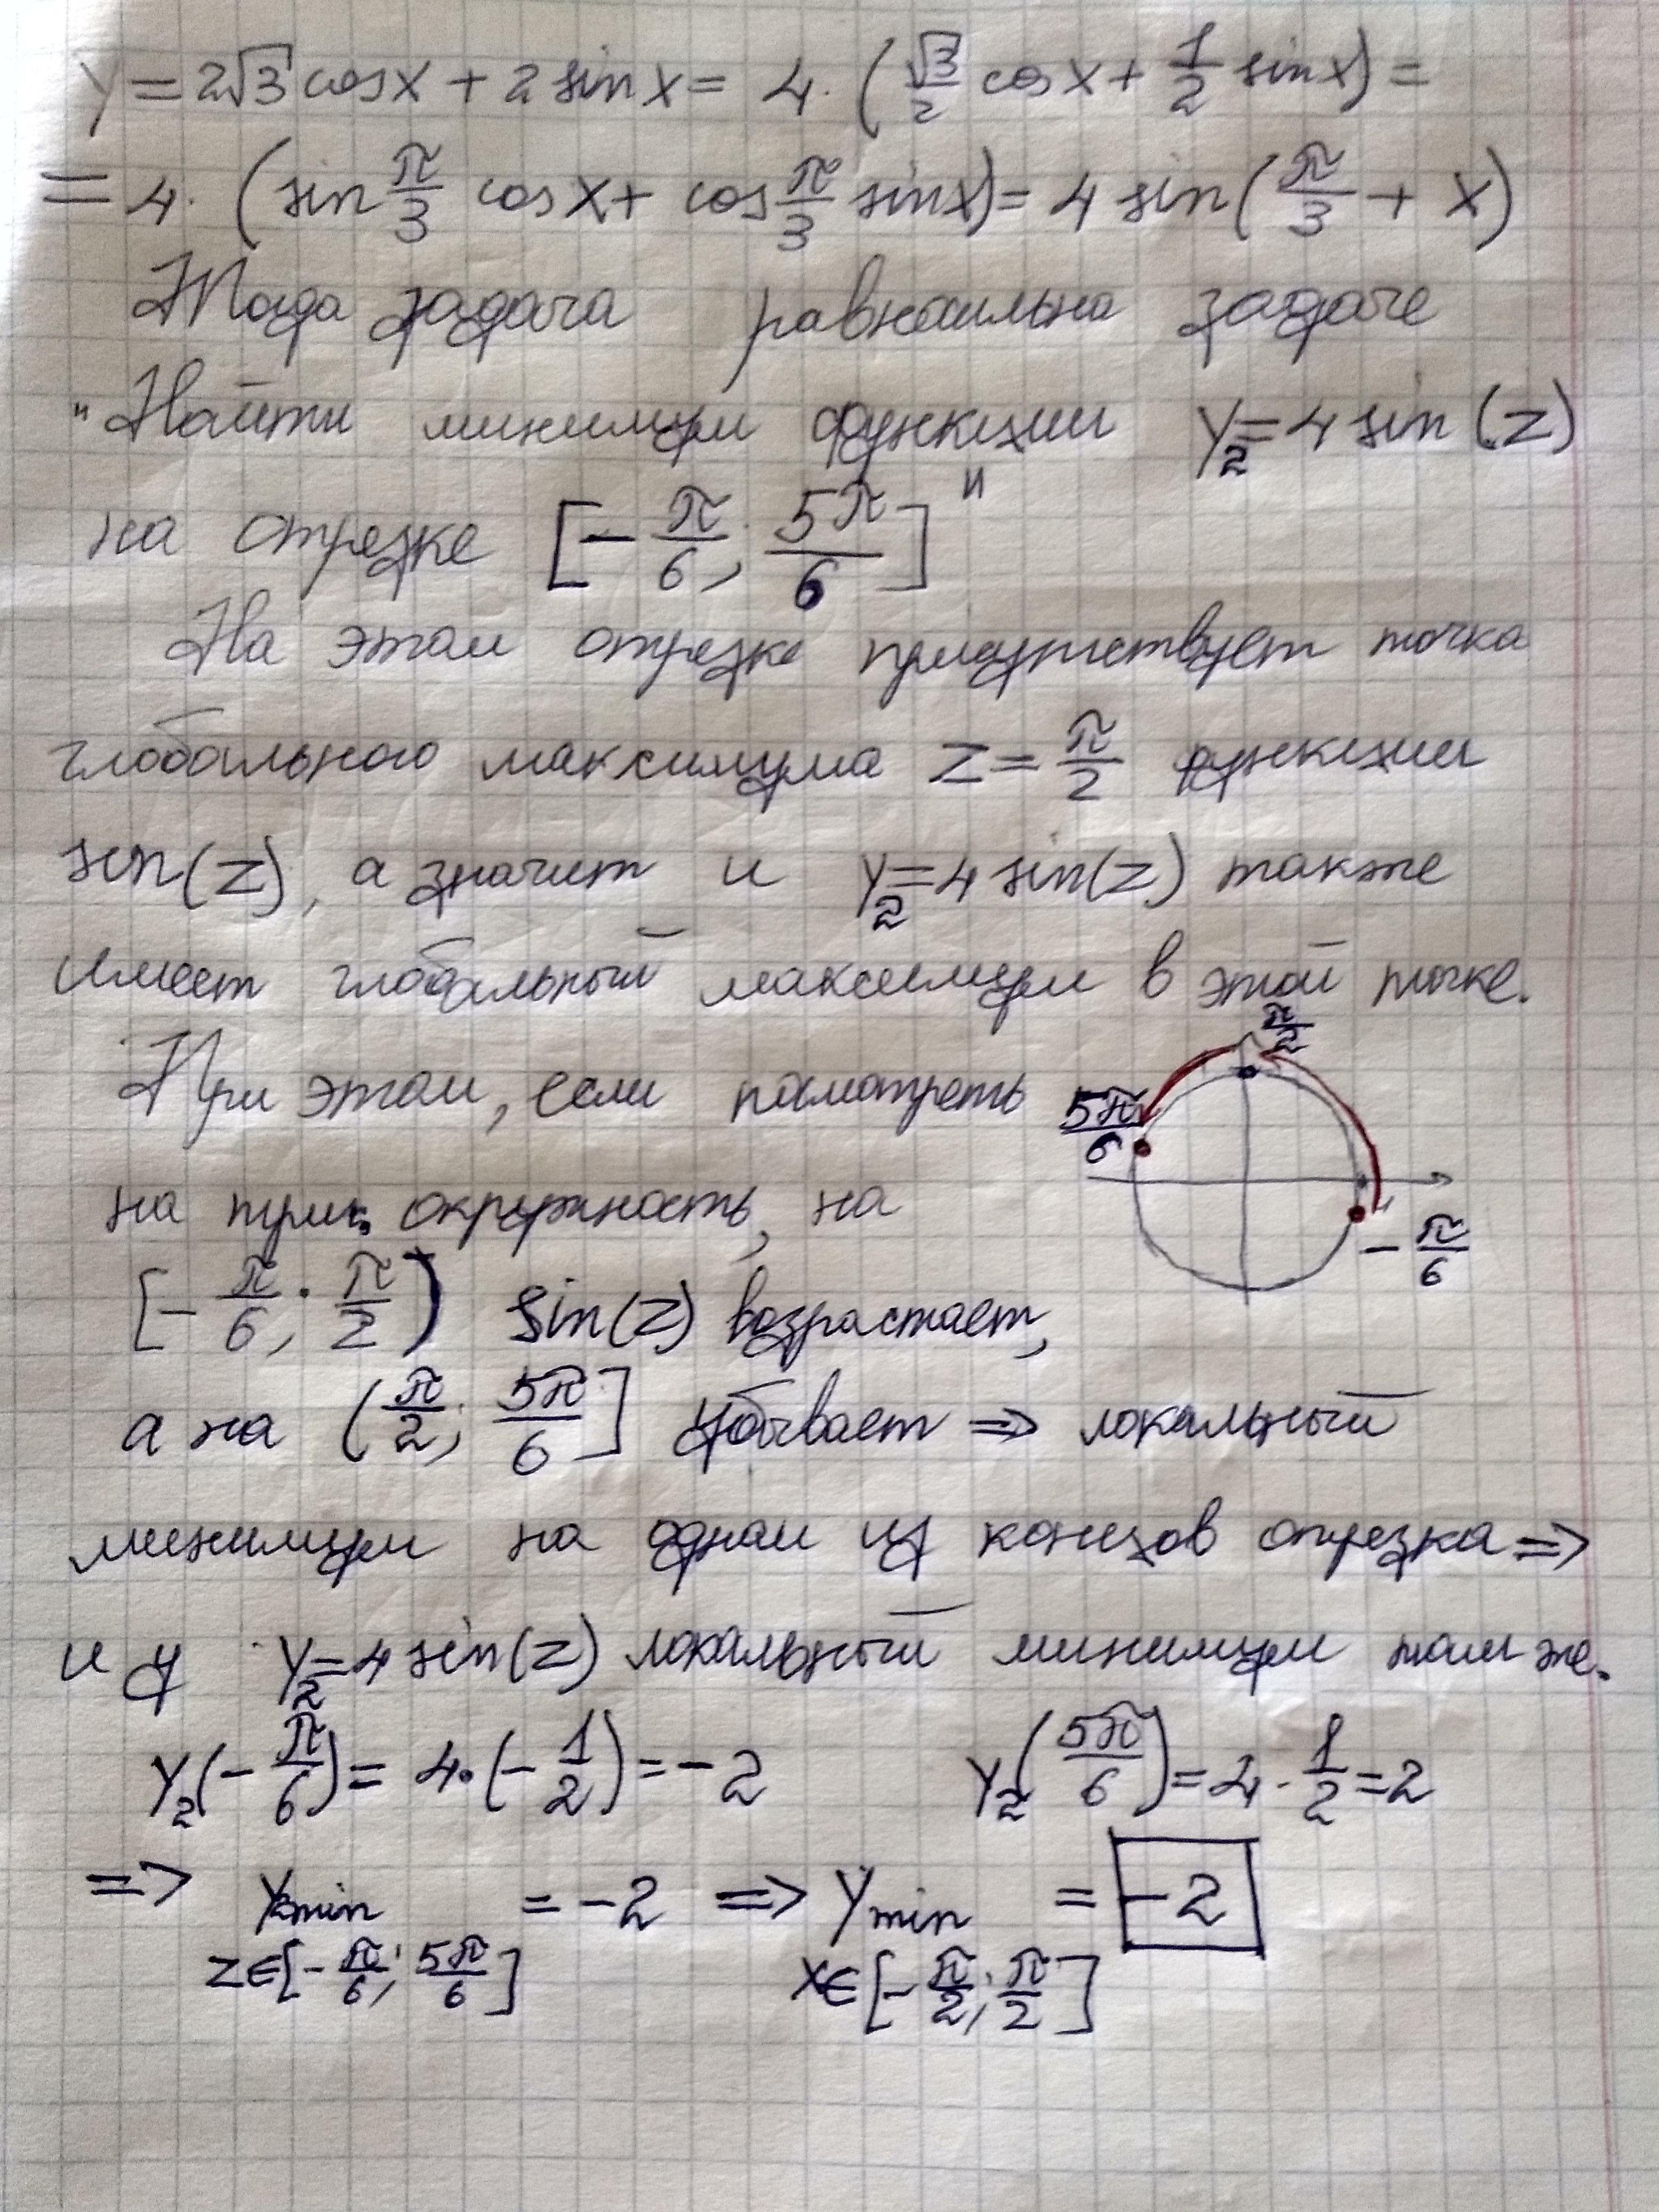 y = 2√3 cos x + 2 sin x = 4 · (√3/2 cos x + 1/2 sin x) =
= 4 · (sin π/3 cos x + cos π/3 sin x) = 4 sin(π/3 + x)
Тогда задача равносильна задаче
"Найти минимум функции y₂ = 4 sin(z)
на отрезке [-π/6; 5π/6]"
На этом отрезке присутствует точка
глобального максимума z = π/2 функции
sin(z), а значит и y₂ = 4 sin(z) также
имеет глобальный максимум в этой точке.
При этом, если посмотреть
на триг. окружность, на
[-π/6; π/2) sin(z) возрастает,
π/2
5π/6
-π/6
а на (π/2; 5π/6] убывает => локальный
минимум на одном из концов отрезка =>
и у y₂ = 4 sin(z) локальный минимум там же.
y₂(-π/6) = 4 · (-1/2) = -2 y₂(5π/6) = 4 · 1/2 = 2
=> y₂min = -2 => ymin = -2
z∈[-π/6; 5π/6] x∈[-π/2; π/2]